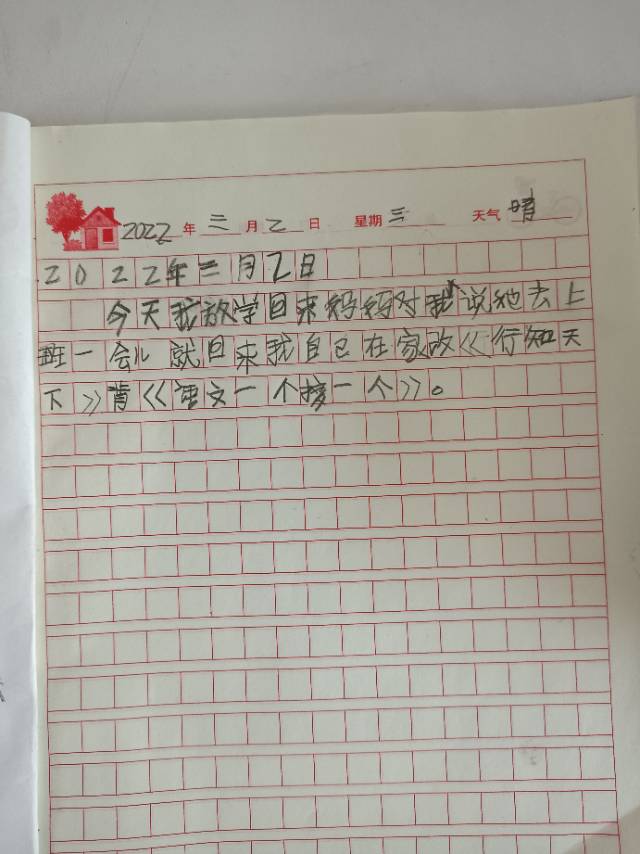 2022年三月2日 星期三 天气晴
2022年三月2日
今天我放学回来妈妈对我说她去上
班一会儿就回来我自己在家改《行知天
下》背《语文一个接一个》。